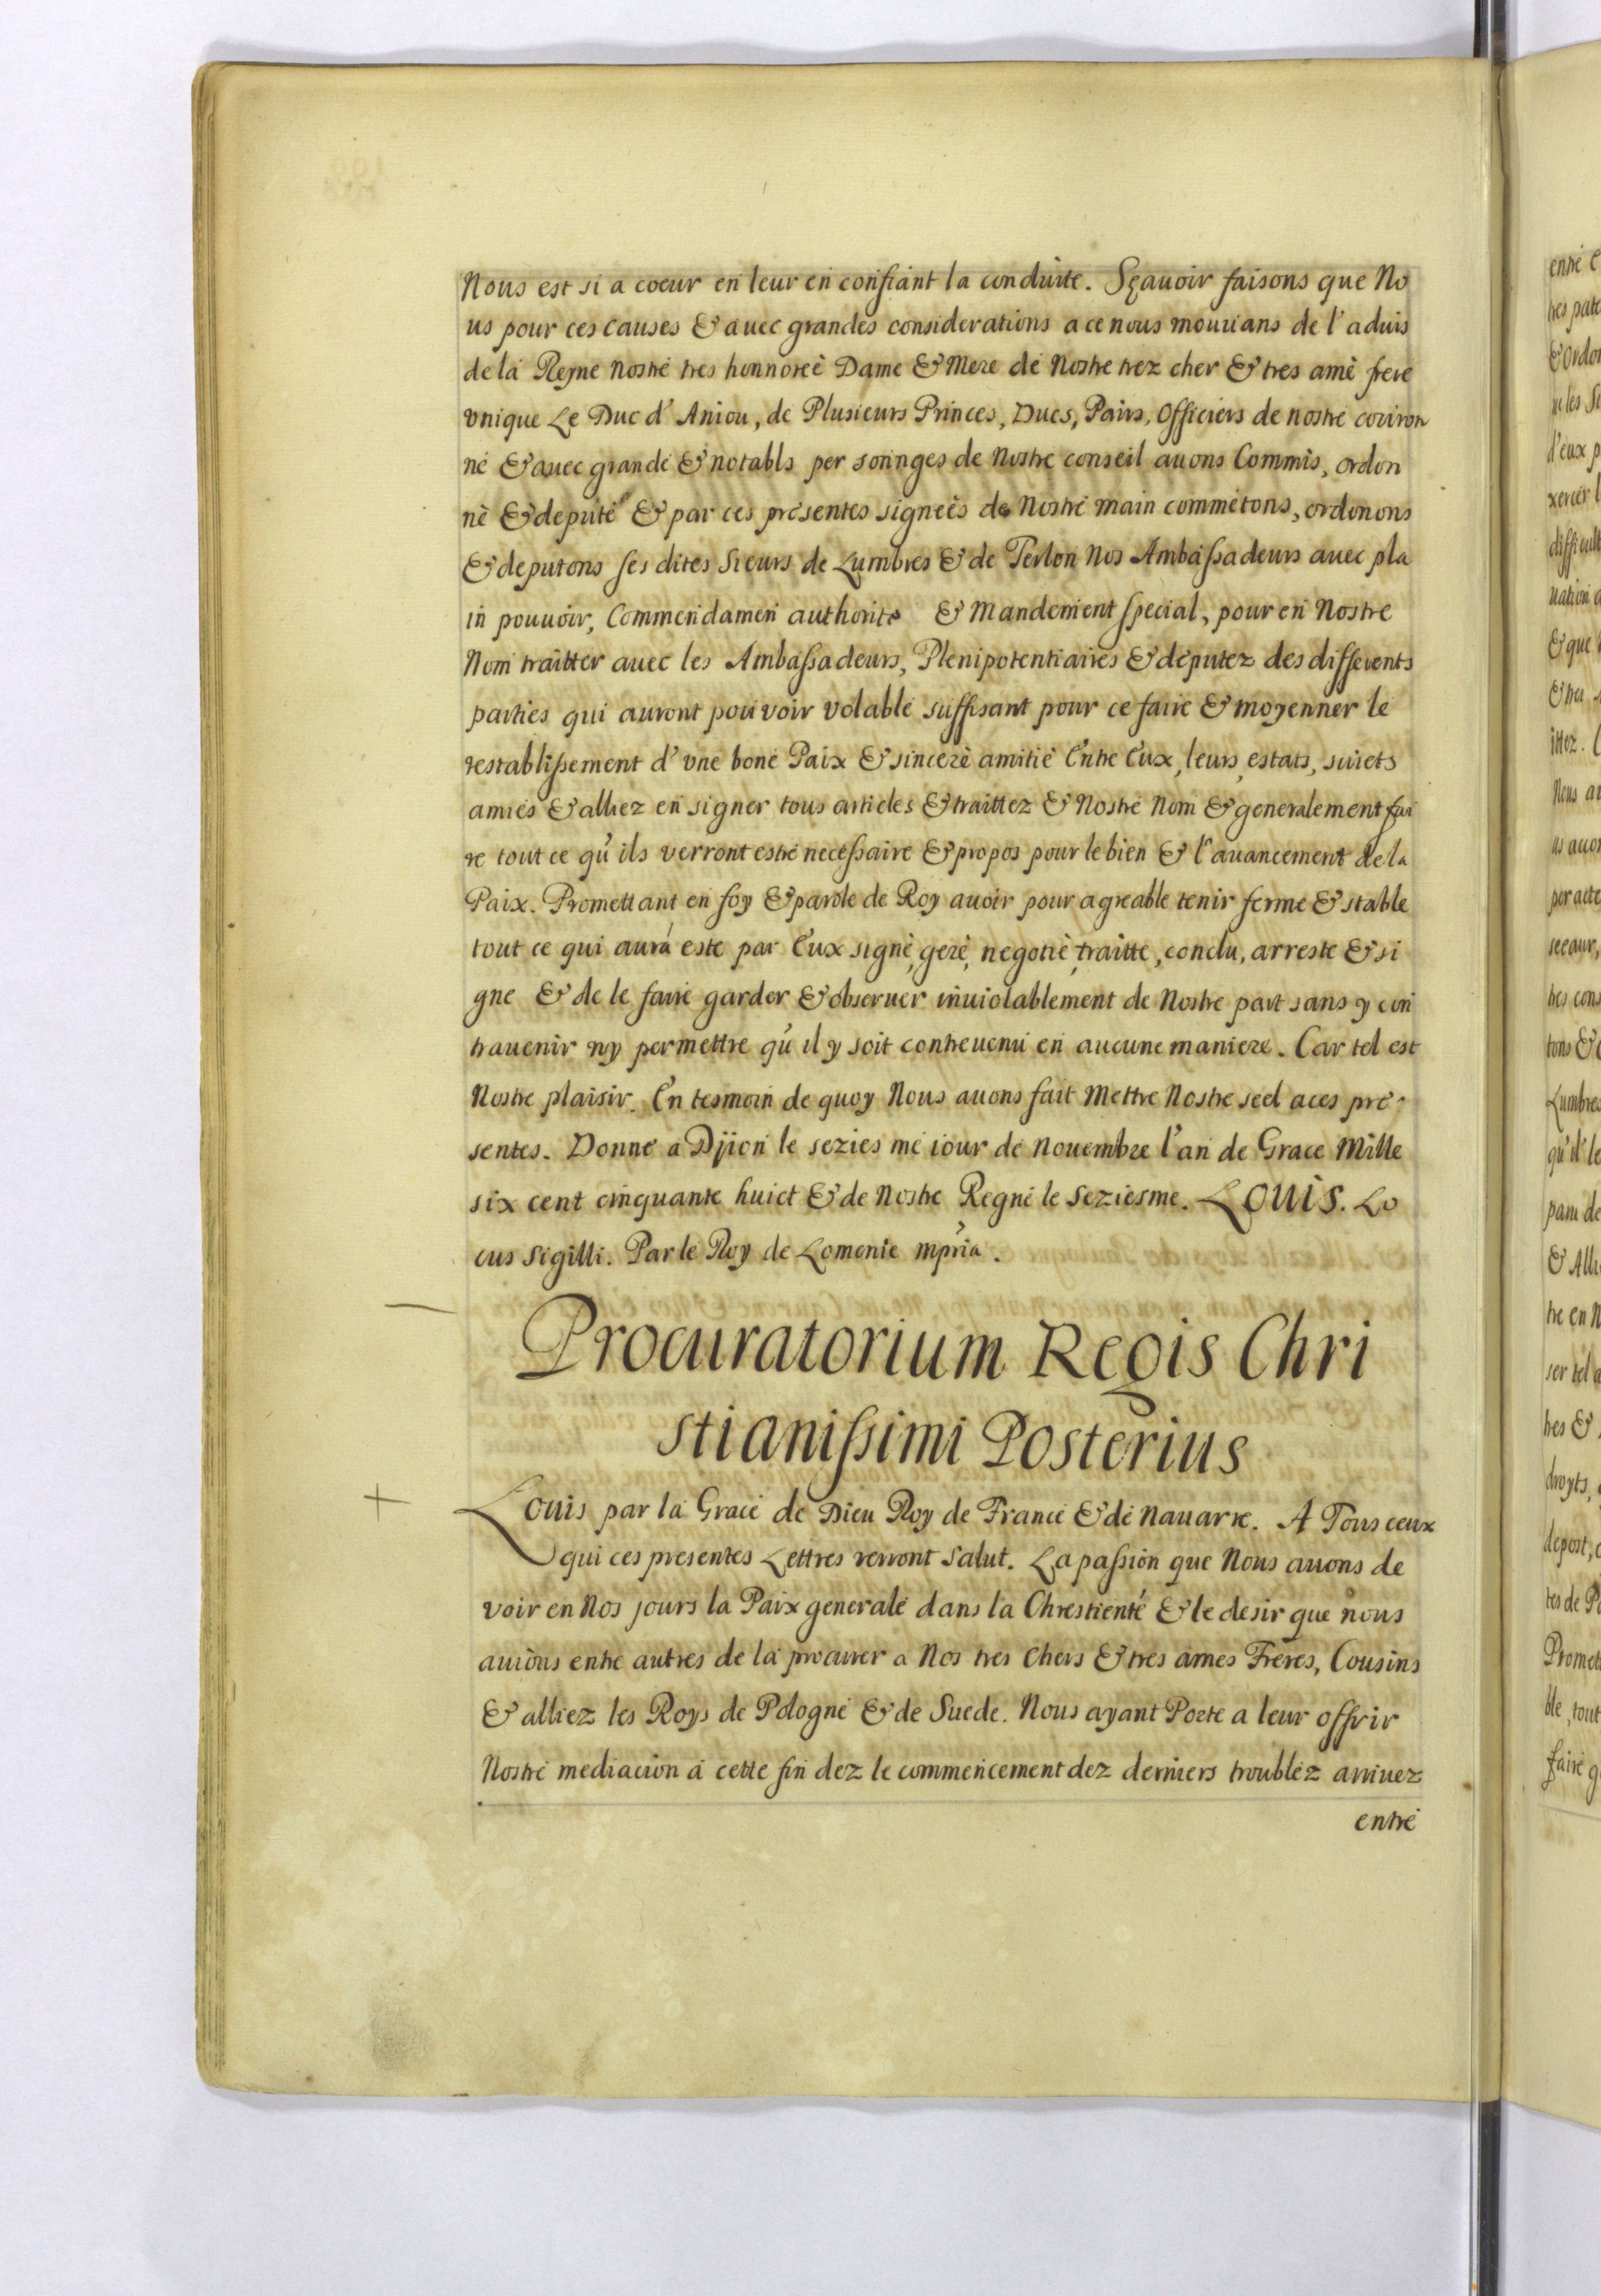 Nous est si a coeur en leur en confiant la conduite. Sçauoir faisons que No
us pour ces causes & auec grandes considerations a ce nous mouuans de l'aduis
de la Reyne Nostre tres honnoreè Dame & Mere de Nostre trez cher & tres amè frere
vnique Le Duc d'Aniou, de Plusieurs Princes, Ducs, Pairs, Officiers de nostre couron
nè & auec grande & notabls per sonnges de Nostre conseil auons Commis, ordon
nè & deputé & par ces presentes signeès de Nostre main commetons, ordonons
& deputons ses dites Sieurs de Lumbres & de Terlon Nos Ambassadeurs auec pla
in pouuoir, Commendamen authorite & Mandement special, pour en Nostre
Nom traitter auec les Ambassadeurs, Plenipotentiaires & deputez des differents
parties qui auront pouvoir volable suffisant pour ce faire & moyenner le
restablissement d'vne bone Paix & sincere amitiè Entre Eux, leurs, estats, suiets
amies & alliez en signer tous articles & traittez & Nostre Nom & generalement fai
re tout ce qu'ils verront estre necessaire & propos pour le bien & l'auancement de la
Paix. Promettant en foy & parole de Roy auoir pour agreable tenir ferme & stable
tout ce qui aura este par Eux signè, gerè, negotiè, traitte, conclu, arreste & si
gne & de le faire garder & obseruer inuiolablement de Nostre part sans y con
trauenir ny permettre qu'il y soit contreuenu en aucune maniere. Car tel est
Nostre plaisir. En tesmoin de quoy Nous auons fait Mettre Nostre seel a ces pre-
sentes. Donne a Dijon le sezies me iour de Nouembre l'an de Grace Mille
six cent cinquante huict & de Nostre Regne le seziesme. LOUIS. Lo
cus sigilli. Par le Roy de Lomenie mpria.
Procuratorium Regis Chri
stianissimi Posterius
Louis par la Grace de Dieu Roy de France & de Nauarre. A Tous ceux
qui ces presentes Lettres verront Salut. La passion que Nous auons de
voir en Nos jours la Paix generale dans la Chrestienté & le desir que nous
auions entre autres de la procurer a Nos tres Chers & tres ames Freres, Cousins
& alliez les Roys de Pologne & de Suede. Nous ayant Porte a leur offrir
Nostre mediacion a cette fin dez le commencement dez derniers troublez arriuez
entre